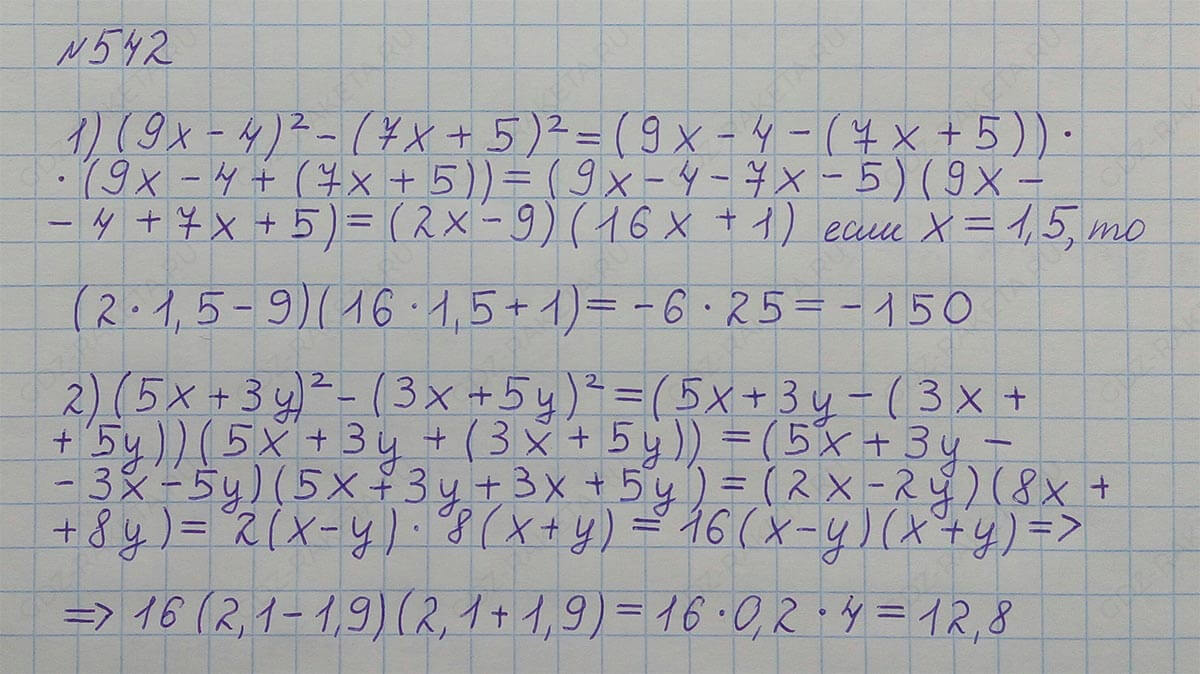 №542
1) (9x - 4)² - (7x + 5)² = (9x - 4 - (7x + 5)) ·
· (9x - 4 + (7x + 5)) = (9x - 4 - 7x - 5) (9x -
- 4 + 7x + 5) = (2x - 9) (16x + 1) если x = 1,5, то
(2 · 1,5 - 9) (16 · 1,5 + 1) = -6 · 25 = -150
2) (5x + 3y)² - (3x + 5y)² = (5x + 3y - (3x +
+ 5y)) (5x + 3y + (3x + 5y)) = (5x + 3y -
- 3x - 5y) (5x + 3y + 3x + 5y) = (2x - 2y) (8x +
+ 8y) = 2(x - y) · 8(x + y) = 16(x - y) (x + y) =>
=> 16 (2,1 - 1,9) (2,1 + 1,9) = 16 · 0,2 · 4 = 12,8